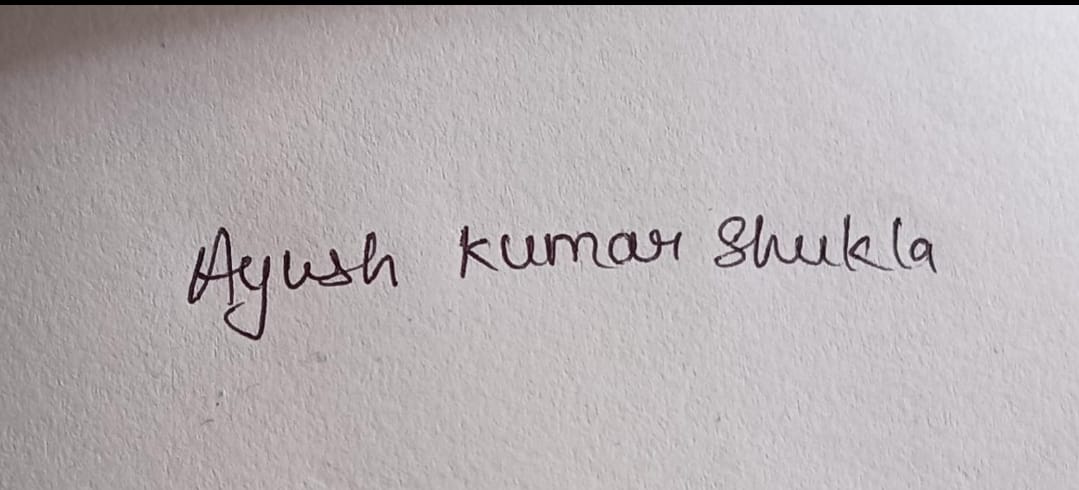 Ayush Kumar Shukla